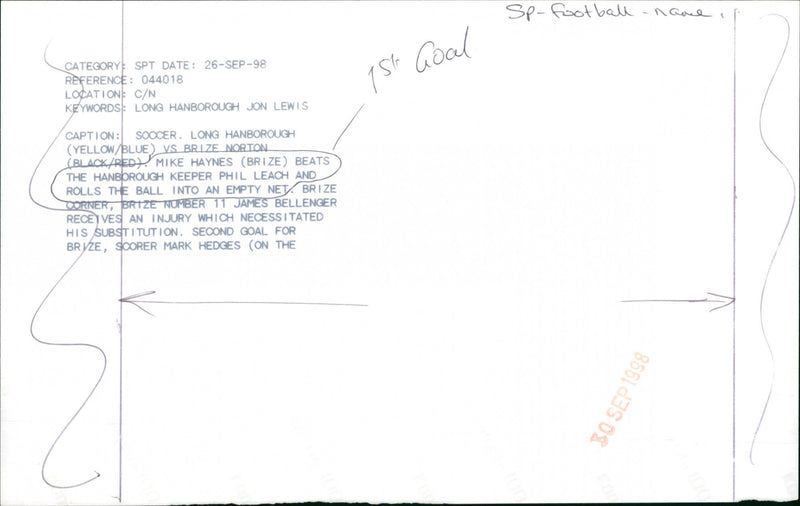 Sp-Football-name.
1st Goal
CATEGORY: SPT DATE: 26-SEP-98
REFERENCE: 044018
LOCATION: C/N
KEYWORDS: LONG HANBOROUGH JON LEWIS
CAPTION: SOCCER. LONG HANBOROUGH
(YELLOW/BLUE) VS BRIZE NORTON
(BLACK/RED). MIKE HAYNES (BRIZE) BEATS
THE HANBOROUGH KEEPER PHIL LEACH AND
ROLLS THE BALL INTO AN EMPTY NET. BRIZE
CORNER, BRIZE NUMBER 11 JAMES BELLENGER
RECEIVES AN INJURY WHICH NECESSITATED
HIS SUBSTITUTION. SECOND GOAL FOR
BRIZE, SCORER MARK HEDGES (ON THE
30 SEP 1998